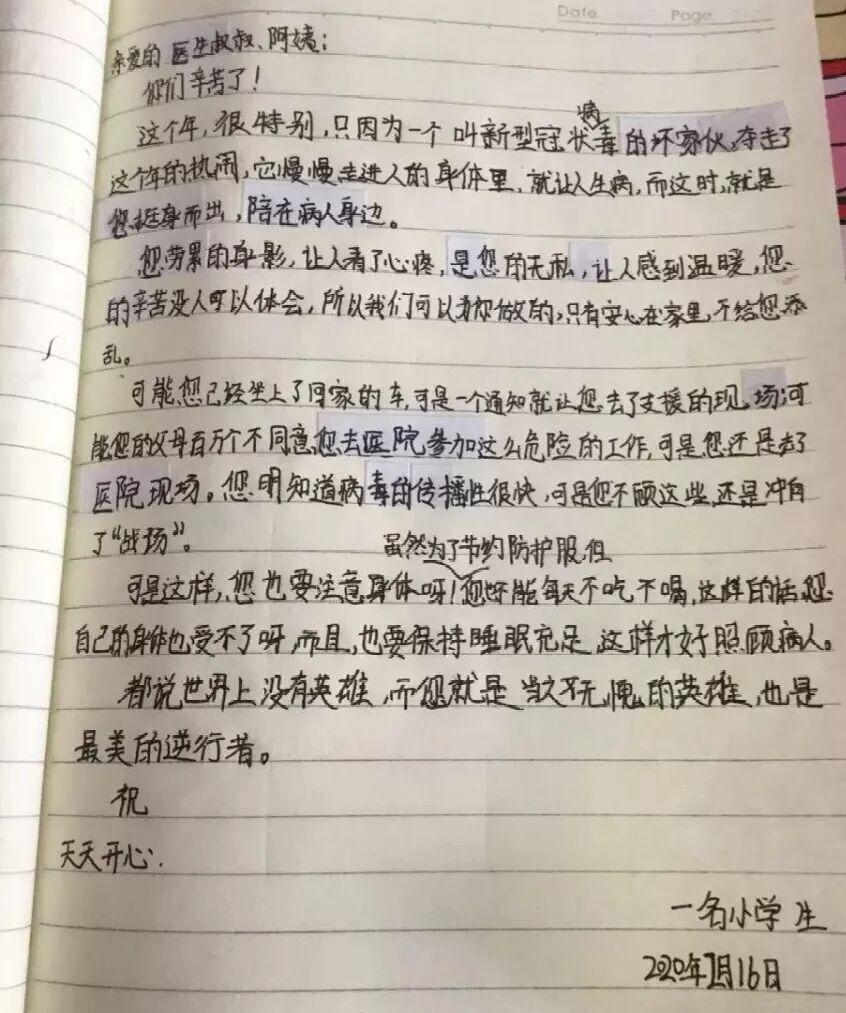 Date Page
亲爱的 医生叔叔、阿姨：
你们辛苦了！
这个年，很特别，只因为一个叫新型冠状病毒的坏家伙，夺走了
这个年的热闹，它慢慢走进人的身体里，就让人生病，而这时，就是
您挺身而出，陪在病人身边。
您劳累的身影，让人看了心疼，是您的无私，让人感到温暖，您
的辛苦没人可以体会，所以我们可以为你做的，只有安心在家里，不给您添
乱。
可能您已经坐上了回家的车，可是一个通知就让您去了支援的现场；可
能您的父母百万个不同意您去医院参加这么危险的工作，可是您还是去了
医院现场。您明知道病毒的传播性很快，可是您不顾这些，还是冲向
了“战场”。
虽然为了节约防护服，但
可是这样，您也要注意身体呀！您不能每天不吃不喝，这样的话，您
自己的身体也受不了呀，而且，也要保持睡眠充足，这样才好照顾病人。
都说世界上没有英雄，而您就是当之无愧的英雄，也是
最美的逆行者。
祝
天天开心.
一名小学生
2020年2月16日